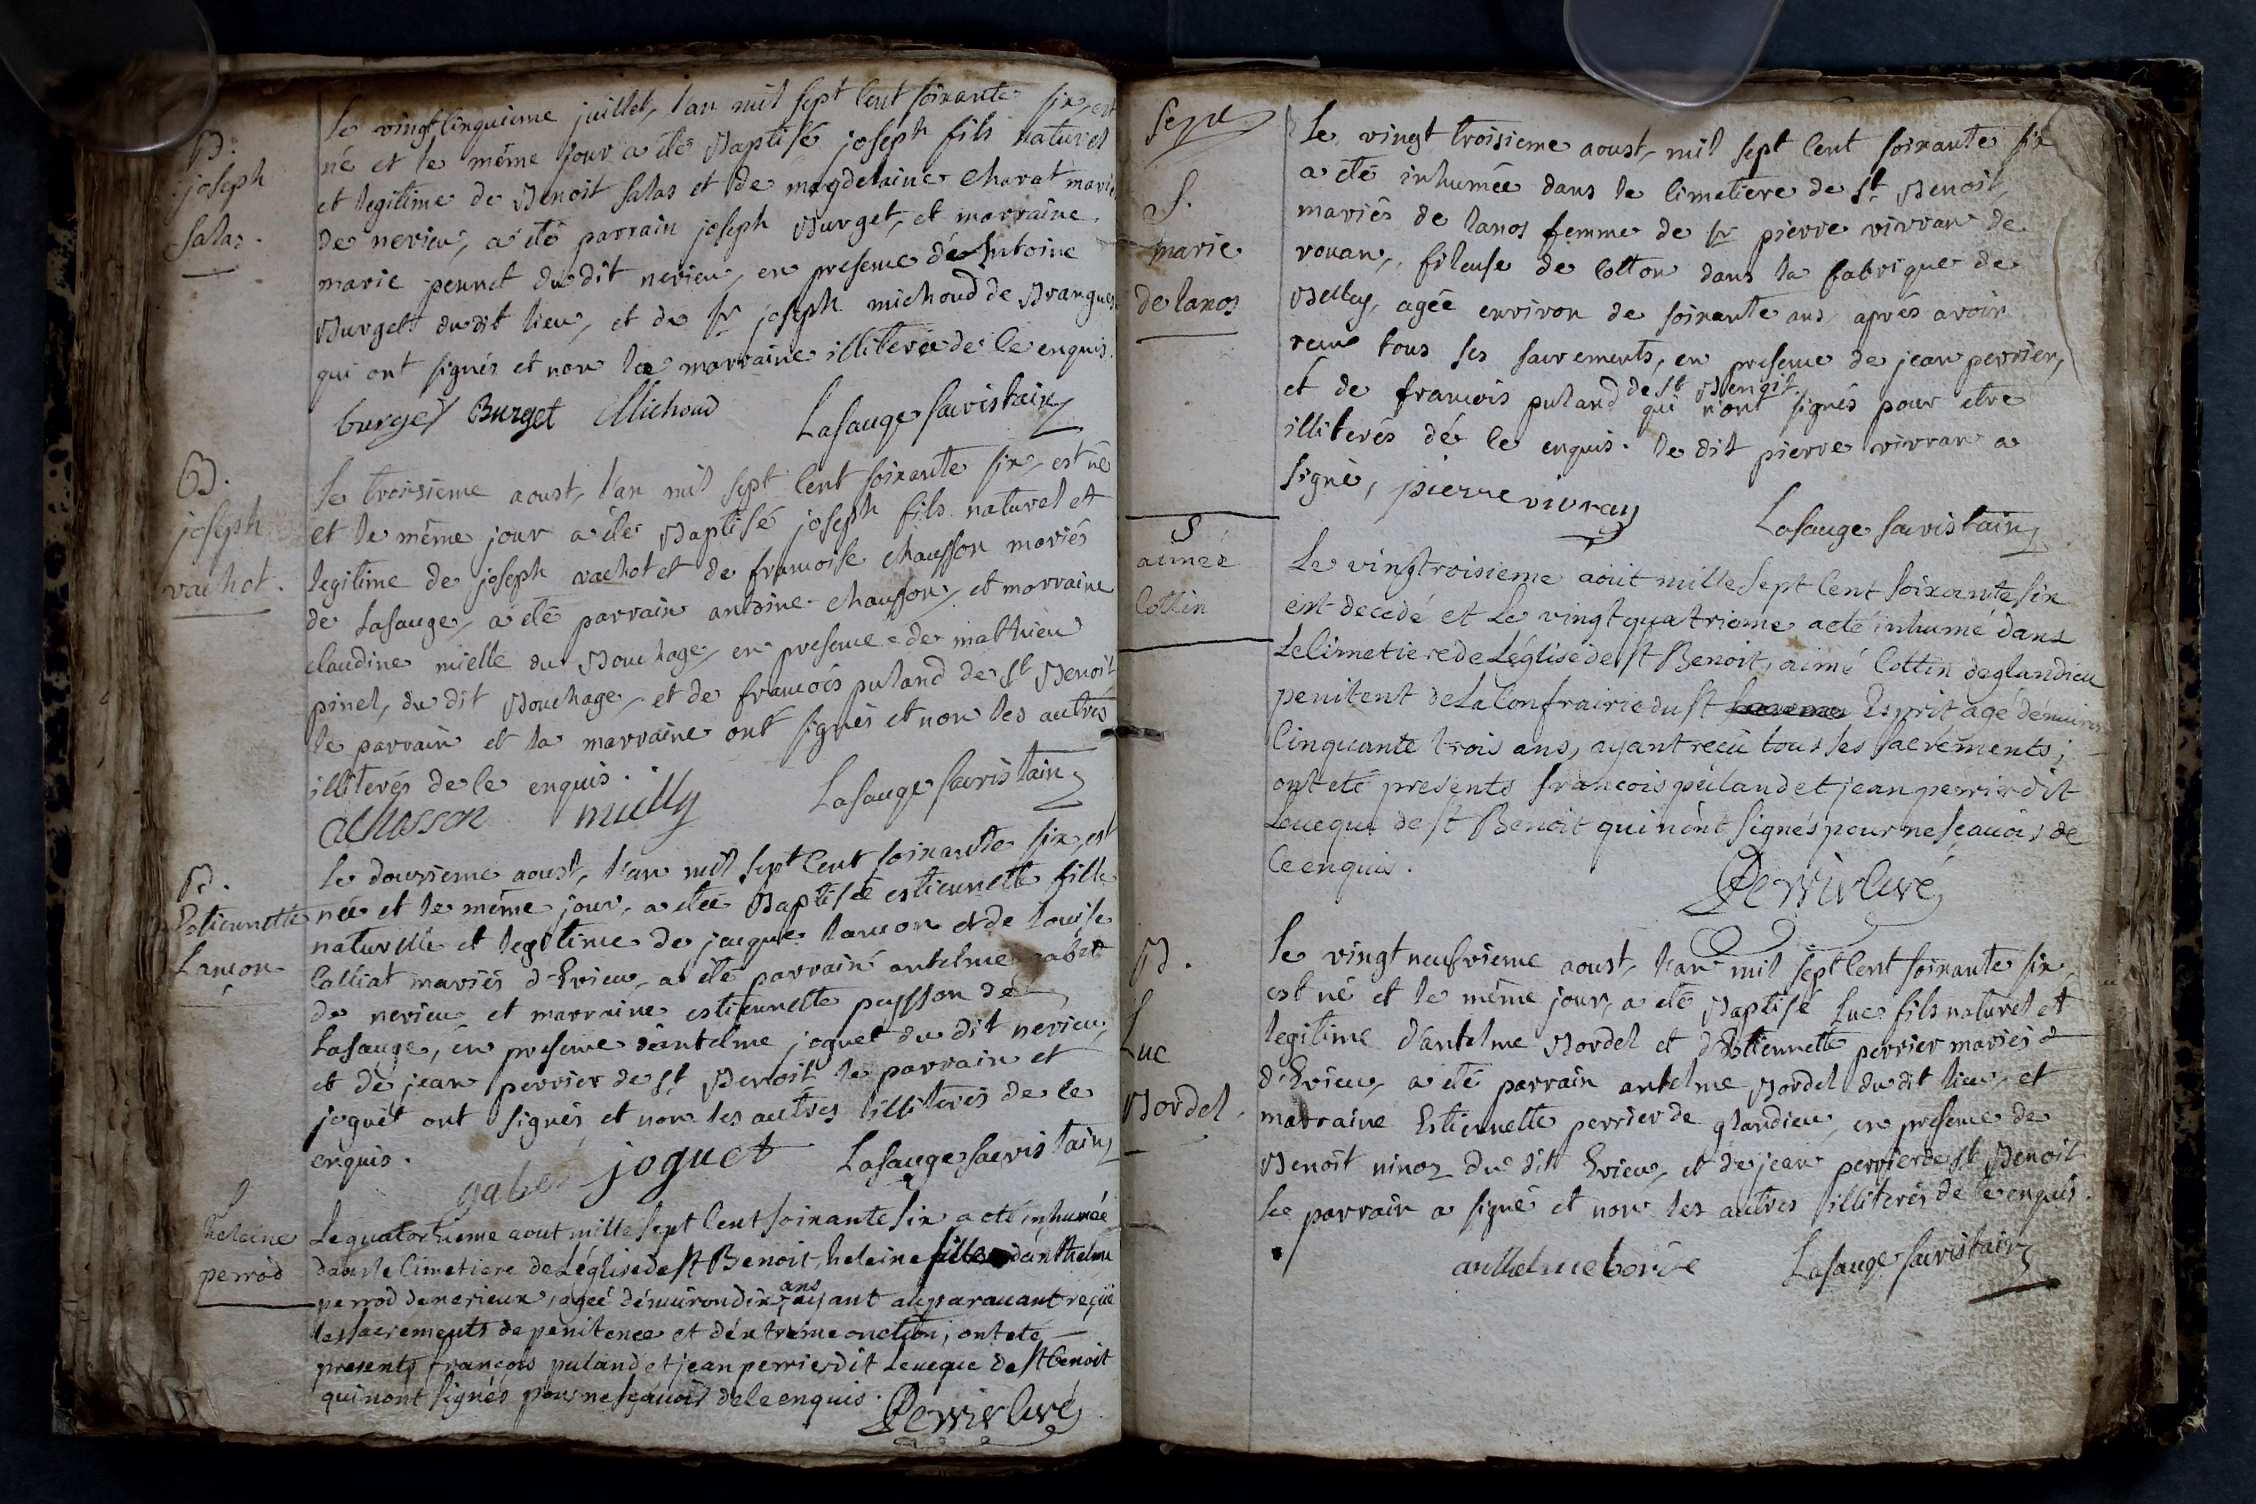 B.
joseph
salas.
Le vingt cinquieme juillet, l'an mil sept cent soixante six, est
né et le même jour a été Baptisé joseph fils naturel
et legitime de Benoit salas et de magdelaine charat mariés
de nerieu, a été parrain joseph Burget, et marraine
marie pennet du dit nerieu, en presence de Antoine
Burget du dit lieu, et de Sr joseph michoud de Brangues
qui ont signés et non la marraine illiterée de ce enquis.
burget Burget Michoud Lasauge sacristain
B.
joseph
vachot.
Le troisieme aoust, l'an mil sept cent soixante six, est né
et le même jour a été Baptisé joseph fils naturel et
legitime de joseph vachot et de francoise chausson mariés
de Lasauge, a été parrain antoine chausson, et marraine
claudine mielle du Bouchage, en presence de mathieu
pinel, du dit Bouchage, et de francois puland de St Benoit
le parrain et la marraine ont signés et non les autres
illiterés de ce enquis.
achosson mielly Lasauge sacristain
B.
Estiennette
Lançon
Le douzieme aoust, l'an mil sept cent soixante six, est
née et le même jour, a été Baptisée estiennette fille
naturelle et legitime de jacque lancon et de louise
Calliat mariés d'Evieu, a été parrain antelme gabet
de nerieu, et marraine estiennette peysson de
Lasauge, en presence d'antelme joguet du dit nerieu,
et de jean perrier de St Benoit le parrain et
joguet ont signés, et non les autres illiterés de ce
enquis.
gabet joguet Lasauge sacristain
S
helaine
perrod
Le quatorzieme aout mille sept cent soixante six a eté inhumée
dans le Cimetiere de Léglise de St Benoit, helaine fille d'anthelme
perrod de nerieux, agée d'environ dix ans, ayant auparavant reçue
les sacrements de penitence et d'extrème onction, ont ete
presents françois puland et jean perrier dit Leveque de St benoit
qui n'ont signés pour ne sçavoir de ce enquis.
Perrier Curé
S.
marie
de lanos
Le vingt troisieme aoust, mil sept cent soixante six
a été inhumée dans le cimetiere de St Benoit,
mariés de lanos femme de Sr pierre vivran de
rouan, fileuse de cotton dans la fabrique de
Belley, agée environ de soixante ans, aprés avoir
recue tous ses sacrements, en presence de jean perrier,
et de francois puland de St Benoit qui n'ont signés pour etre
illiterés de ce enquis. le dit pierre vivran a
signé, pierre vivran Lasauge sacristain
S
aimée
Cottin
Le vingt troisieme aout mille sept cent soixante six
est decedé et Le vingt quatrieme a eté inhumé dans
Le Cimetiere de Léglise de St Benoit, aimé Cottin de glandieu
penitent de La Confrairie du St Esprit agé d'environ
Cinquante trois ans, ayant reçu tous ses sacrements;
ont eté presents francois puland et jean perrier dit
Leveque de St Benoit qui n'ont signés pour ne sçavoir de
Ce enquis.
Perrier Curé
B.
Luc
Bordel.
Le vingt neufvieme aoust, l'an mil sept cent soixante six,
est né et le même jour, a été Baptisé Luc fils naturel et
legitime d'antelme Bordel et d'Estiennette perrier mariés
d'Evieu, a été parrain antelme Bordel du dit lieu, et
marraine Estiennette perrier de glandieu, en presence de
Benoit ninoz du dit Evieu, et de jean perrier de St Benoit
Le parrain a signé et non les autres illiterés de ce enquis.
anthelme borde Lasauge sacristain